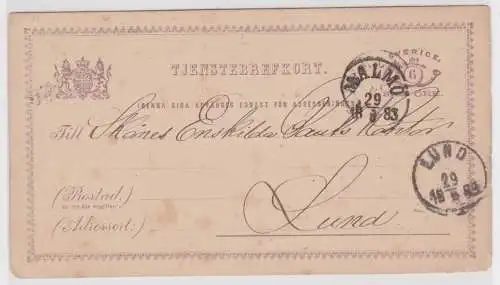 SVERIGE.
6
TJENSTEBREFKORT.
MALMÖ
29
18 5 83
(DENNA SIDA ANVÄNDES ENDAST FÖR ADRESSERING)
Till Skånes Enskilda Banks Kontor
LUND
29
18 5 83
(Postad.)
(Adressort:)
Lund.